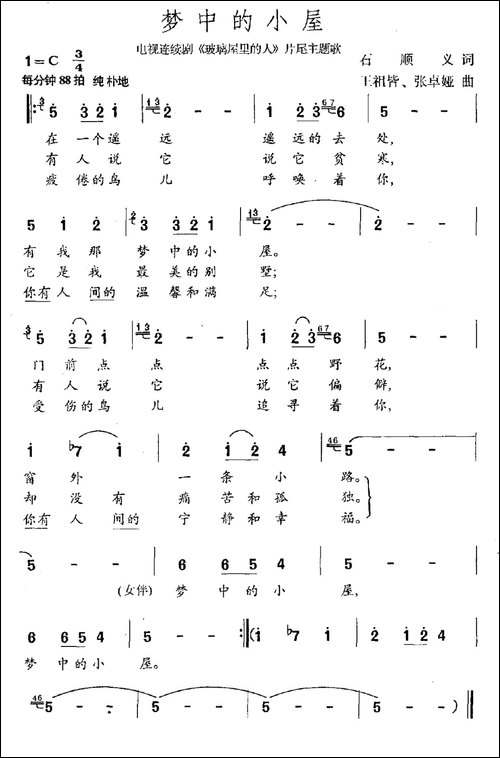 梦中的小屋
电视连续剧《玻璃屋里的人》片尾主题歌
1=C 3/4
石顺义词
每分钟88拍 纯朴地
王祖皆、张卓娅曲
5 3 2 1 2 - - 1 2 3 6 5 - -
在一个遥远 遥远的去处,
有人说它 说它贫寒,
疲倦的鸟儿 呼唤着你,
5 1 2 3 3 1 2 2 - - 2 - -
有我那梦中的小屋。
它是我最美的别墅;
你有人间的温馨和满足;
5 3 2 1 2 - - 1 2 3 6 5 - -
门前点点 点点野花,
有人说它 说它偏僻,
受伤的鸟儿 追寻着你,
1 ♭7 1 2 1 2 4 5 - -
窗外一条小路。
却没有痛苦和孤独。
你有人间的宁静和幸福。
5 - - 6 6 5 4 5 - -
(女伴)梦中的小屋,
6 6 5 4 5 - - :‖(1 ♭7 1 2 1 2 4
梦中的小屋。
5 - - 5 - - 5 - - 5 - - )‖